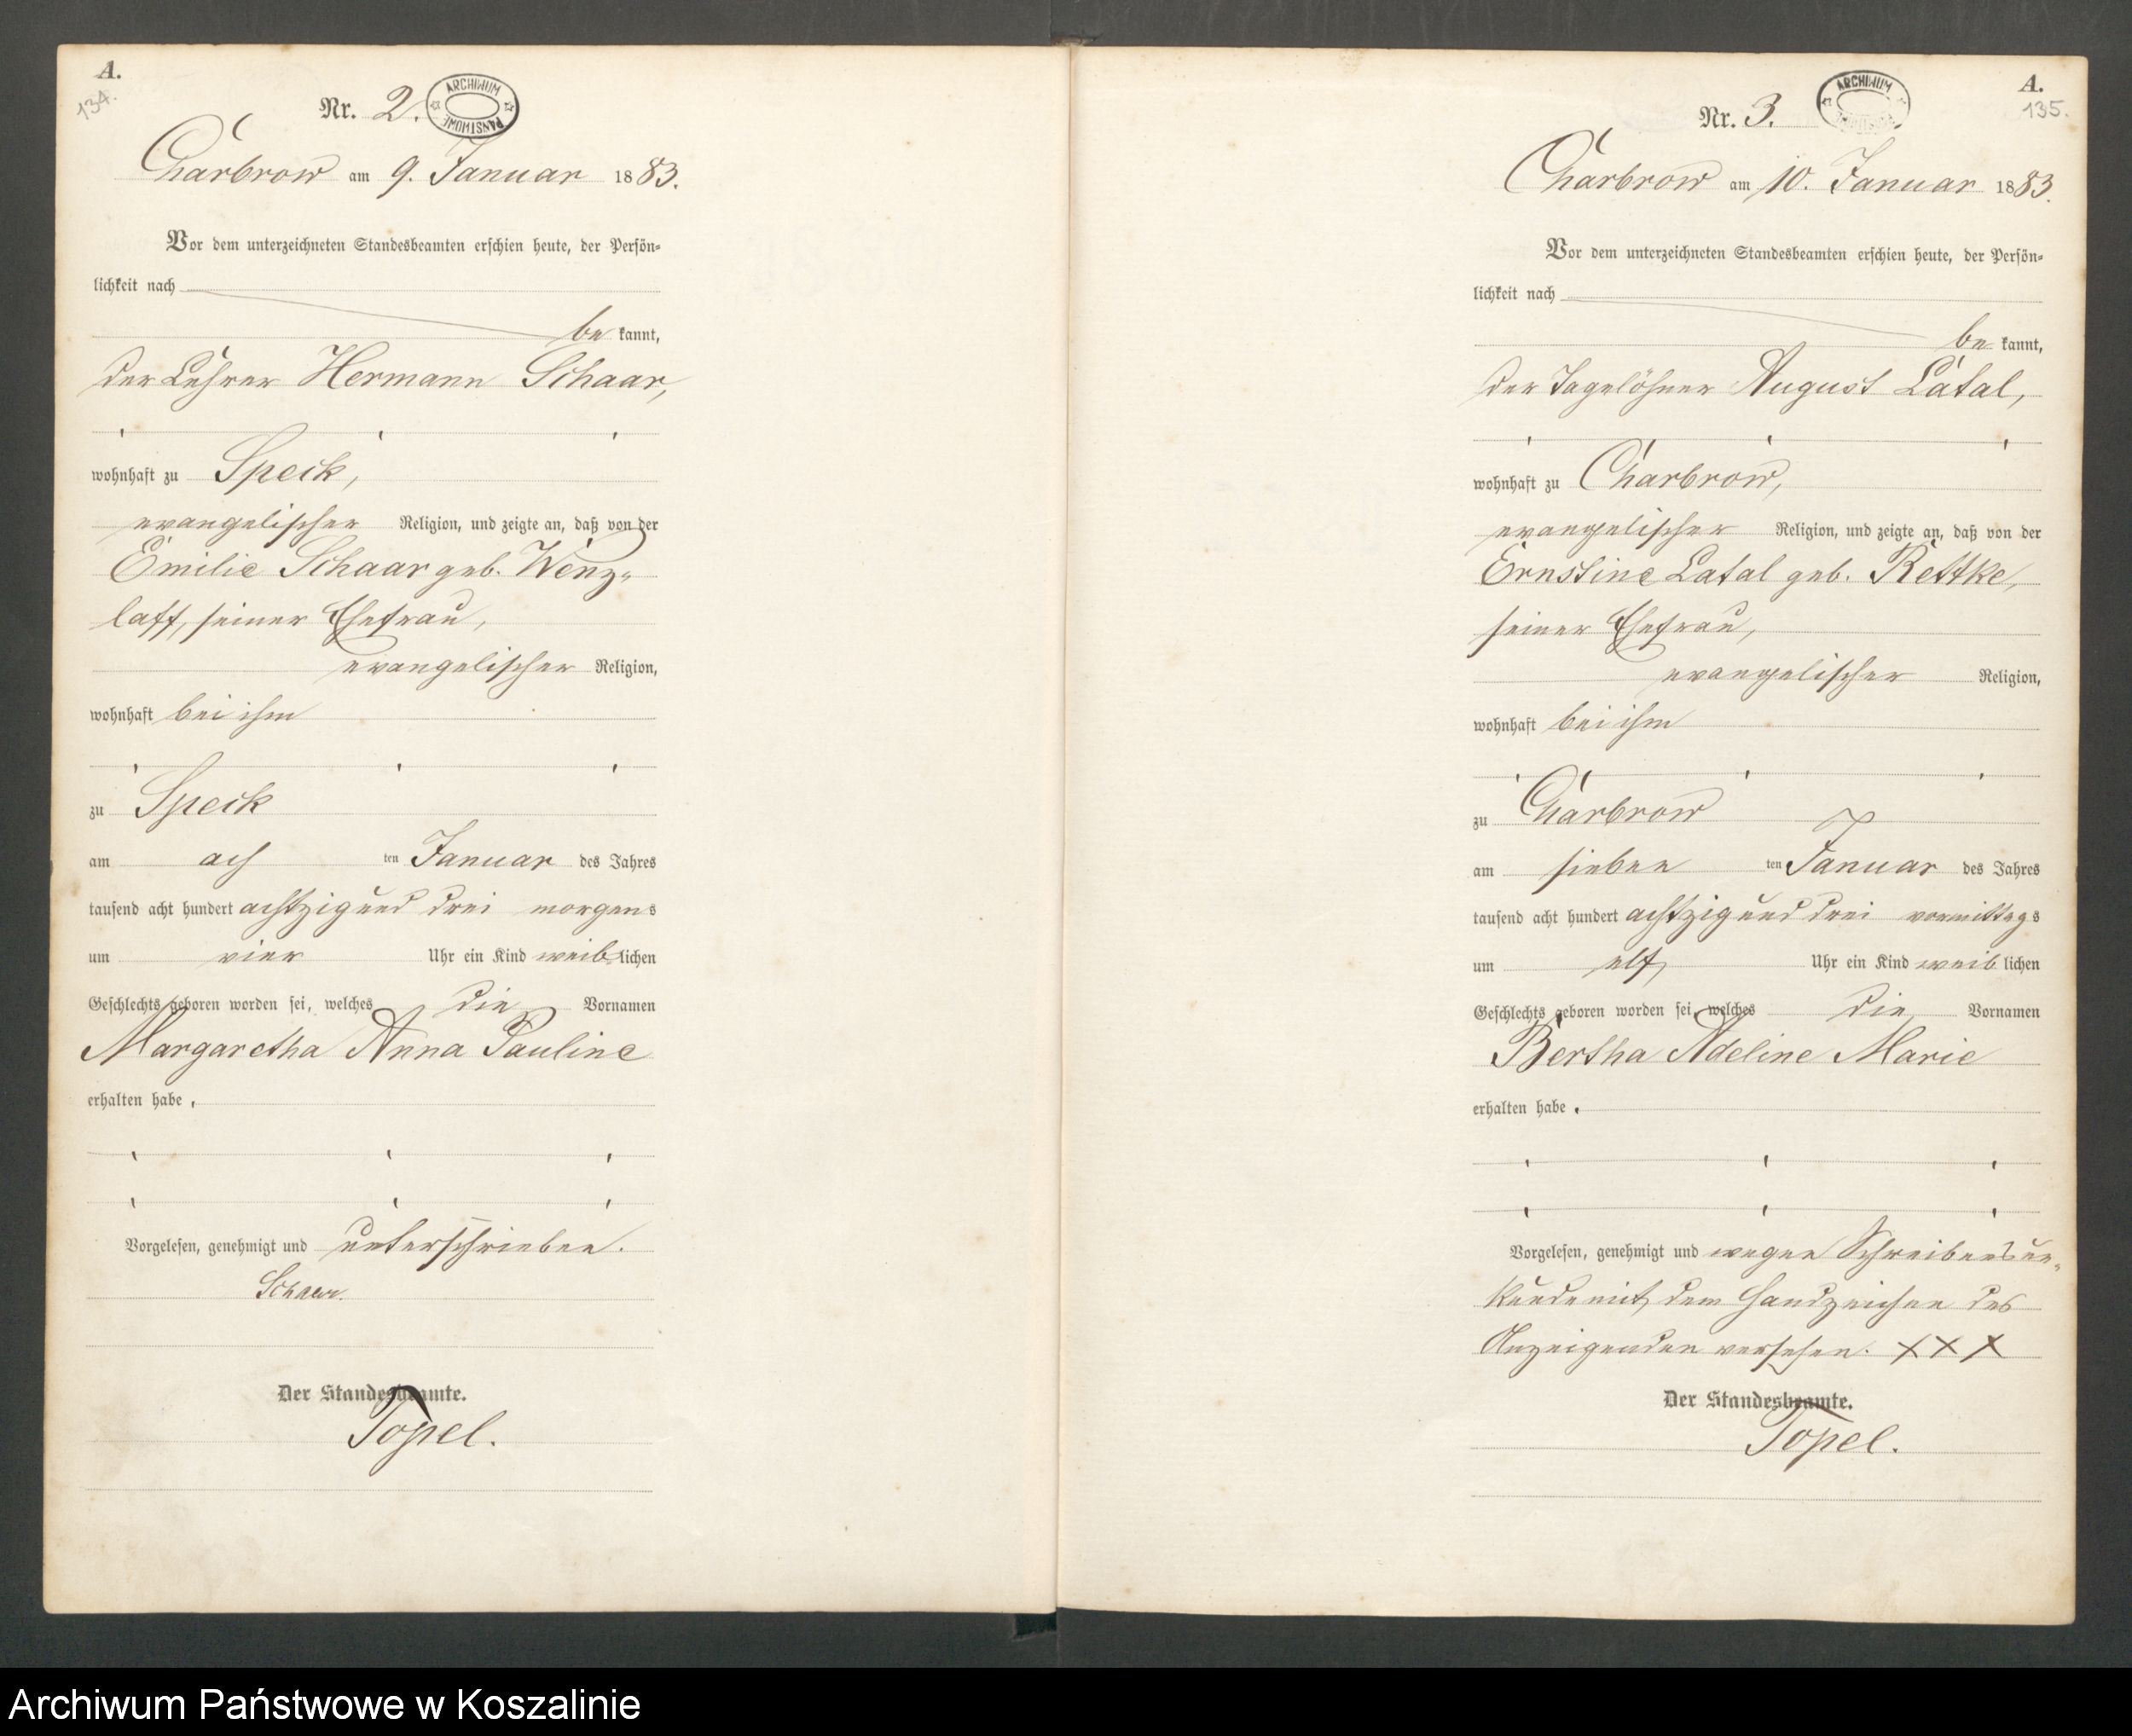 A.
134.
Nr. 2.
ARCHIWUM PAŃSTWOWE
Charbrow am 9. Januar 1883.
Vor dem unterzeichneten Standesbeamten erschien heute, der Persön-
lichkeit nach
be kannt,
der Lehrer Hermann Schaar,
wohnhaft zu Speck,
evangelischer Religion, und zeigte an, daß von der
Emilie Schaar geb. Wenz-
laff, seiner Ehefrau,
evangelischer Religion,
wohnhaft bei ihm
zu Speck
am ach ten Januar des Jahres
tausend acht hundert achtzig und drei morgens
um vier Uhr ein Kind weib lichen
Geschlechts geboren worden sei, welches die Vornamen
Margaretha Anna Pauline
erhalten habe.
Vorgelesen, genehmigt und unterschrieben.
Schaar.
Der Standesbeamte.
Topel.
A.
135.
Nr. 3.
ARCHIWUM
Charbrow am 10. Januar 1883.
Vor dem unterzeichneten Standesbeamten erschien heute, der Persön-
lichkeit nach
be kannt,
der Tagelöhner August Latal,
wohnhaft zu Charbrow,
evangelischer Religion, und zeigte an, daß von der
Ernstine Latal geb. Rettke,
seiner Ehefrau,
evangelischer Religion,
wohnhaft bei ihm
zu Charbrow
am sieben ten Januar des Jahres
tausend acht hundert achtzig und drei vormittags
um elf Uhr ein Kind weib lichen
Geschlechts geboren worden sei, welches die Vornamen
Bertha Adeline Marie
erhalten habe.
Vorgelesen, genehmigt und wegen Schreibensun-
kunde mit dem Handzeichen des
Anzeigenden versehen. XXX
Der Standesbeamte.
Topel.
Archiwum Państwowe w Koszalinie